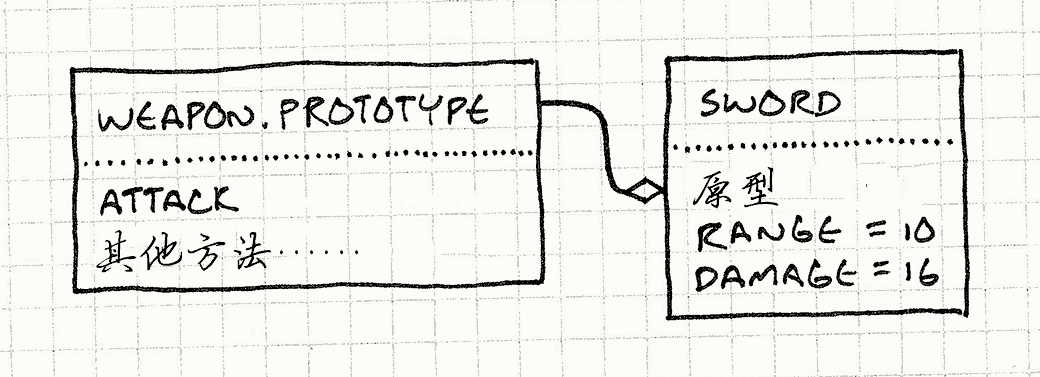 WEAPON.PROTOTYPE
ATTACK
其他方法······
SWORD
原型
RANGE = 10
DAMAGE = 16